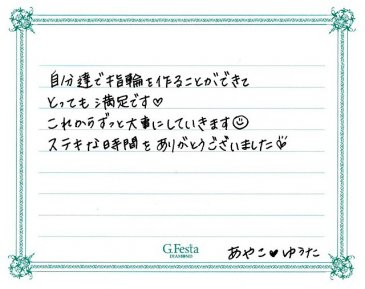 自分達で指輪を作ることができて
とっても満足です♡
これからずっと大事にしていきます☺
ステキな時間をありがとうございました♡
G.Festa
DIAMOND
あやこ♥ゆうた